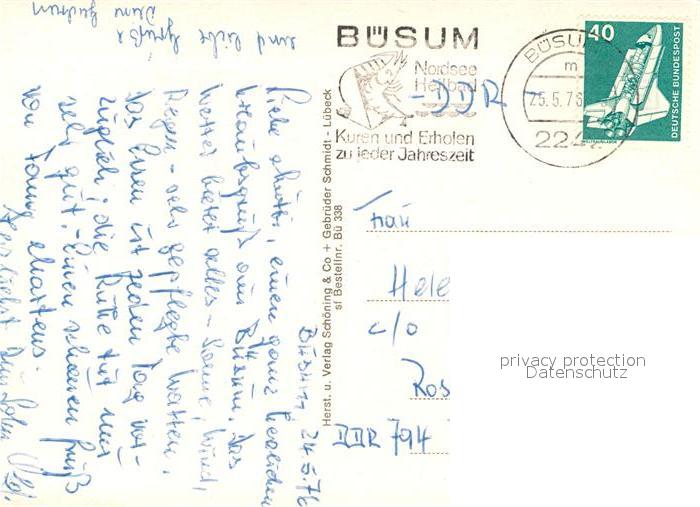 BÜSUM
Nordsee
Heilbad
Kuren und Erholen
zu jeder Jahreszeit
BÜSUM
m
25.5.76
2242
40
DEUTSCHE BUNDESPOST
DDR
Frau
Hele
c/o
Ros
DDR 794
privacy protection
Datenschutz
Herst. u. Verlag Schöning & Co + Gebrüder Schmidt - Lübeck
sf Bestellnr. Bü 338
Büsum 24.5.76
Liebe Mutti, einen ganz herzlichen
Urlaubsgruß aus Büsum. Das
Wetter bietet alles - Sonne, Wind,
Regen - sehr gepflegte Watten.
Das Essen ist jeden Tag vor-
züglich; die Ruhe tut uns
sehr gut. Einen schönen Gruß
von Martens.
Herzlichst Dein Sohn
und liebe Grüße
Deine